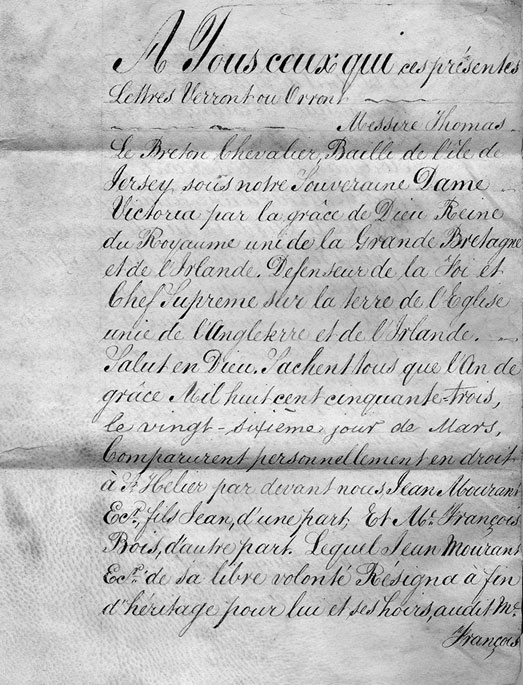 A Tous ceux qui ces présentes
Lettres Verront ou Orront
Messire Thomas
Le Breton Chevalier, Bailli de l'île de
Jersey, sous notre Souveraine Dame
Victoria par la grâce de Dieu Reine
du Royaume uni de la Grande Bretagne
et de l'Irlande. Defenseur de la Foi et
Chef Supreme sur la terre de l'Eglise
unie de l'Angleterre et de l'Irlande.
Salut en Dieu. Sachent tous que l'An de
grâce Mil huit cent cinquante-trois,
le vingt-sixième jour de Mars,
Comparurent personnellement en droit
à St. Helier par devant nous Jean Mourant
Ecr., fils Jean, d'une part; Et Mr. François
Bois, d'autre part. Lequel Jean Mourant
Ecr. de sa libre volonté Résigna à fin
d'héritage pour lui et ses hoirs, audit Mr.
François